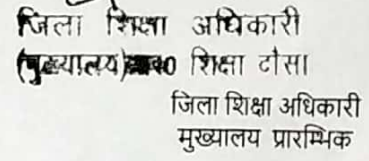 जिला शिक्षा अधिकारी
(मुख्यालय) शिक्षा
जिला शिक्षा अधिकारी
मुख्यालय प्रारम्भिक